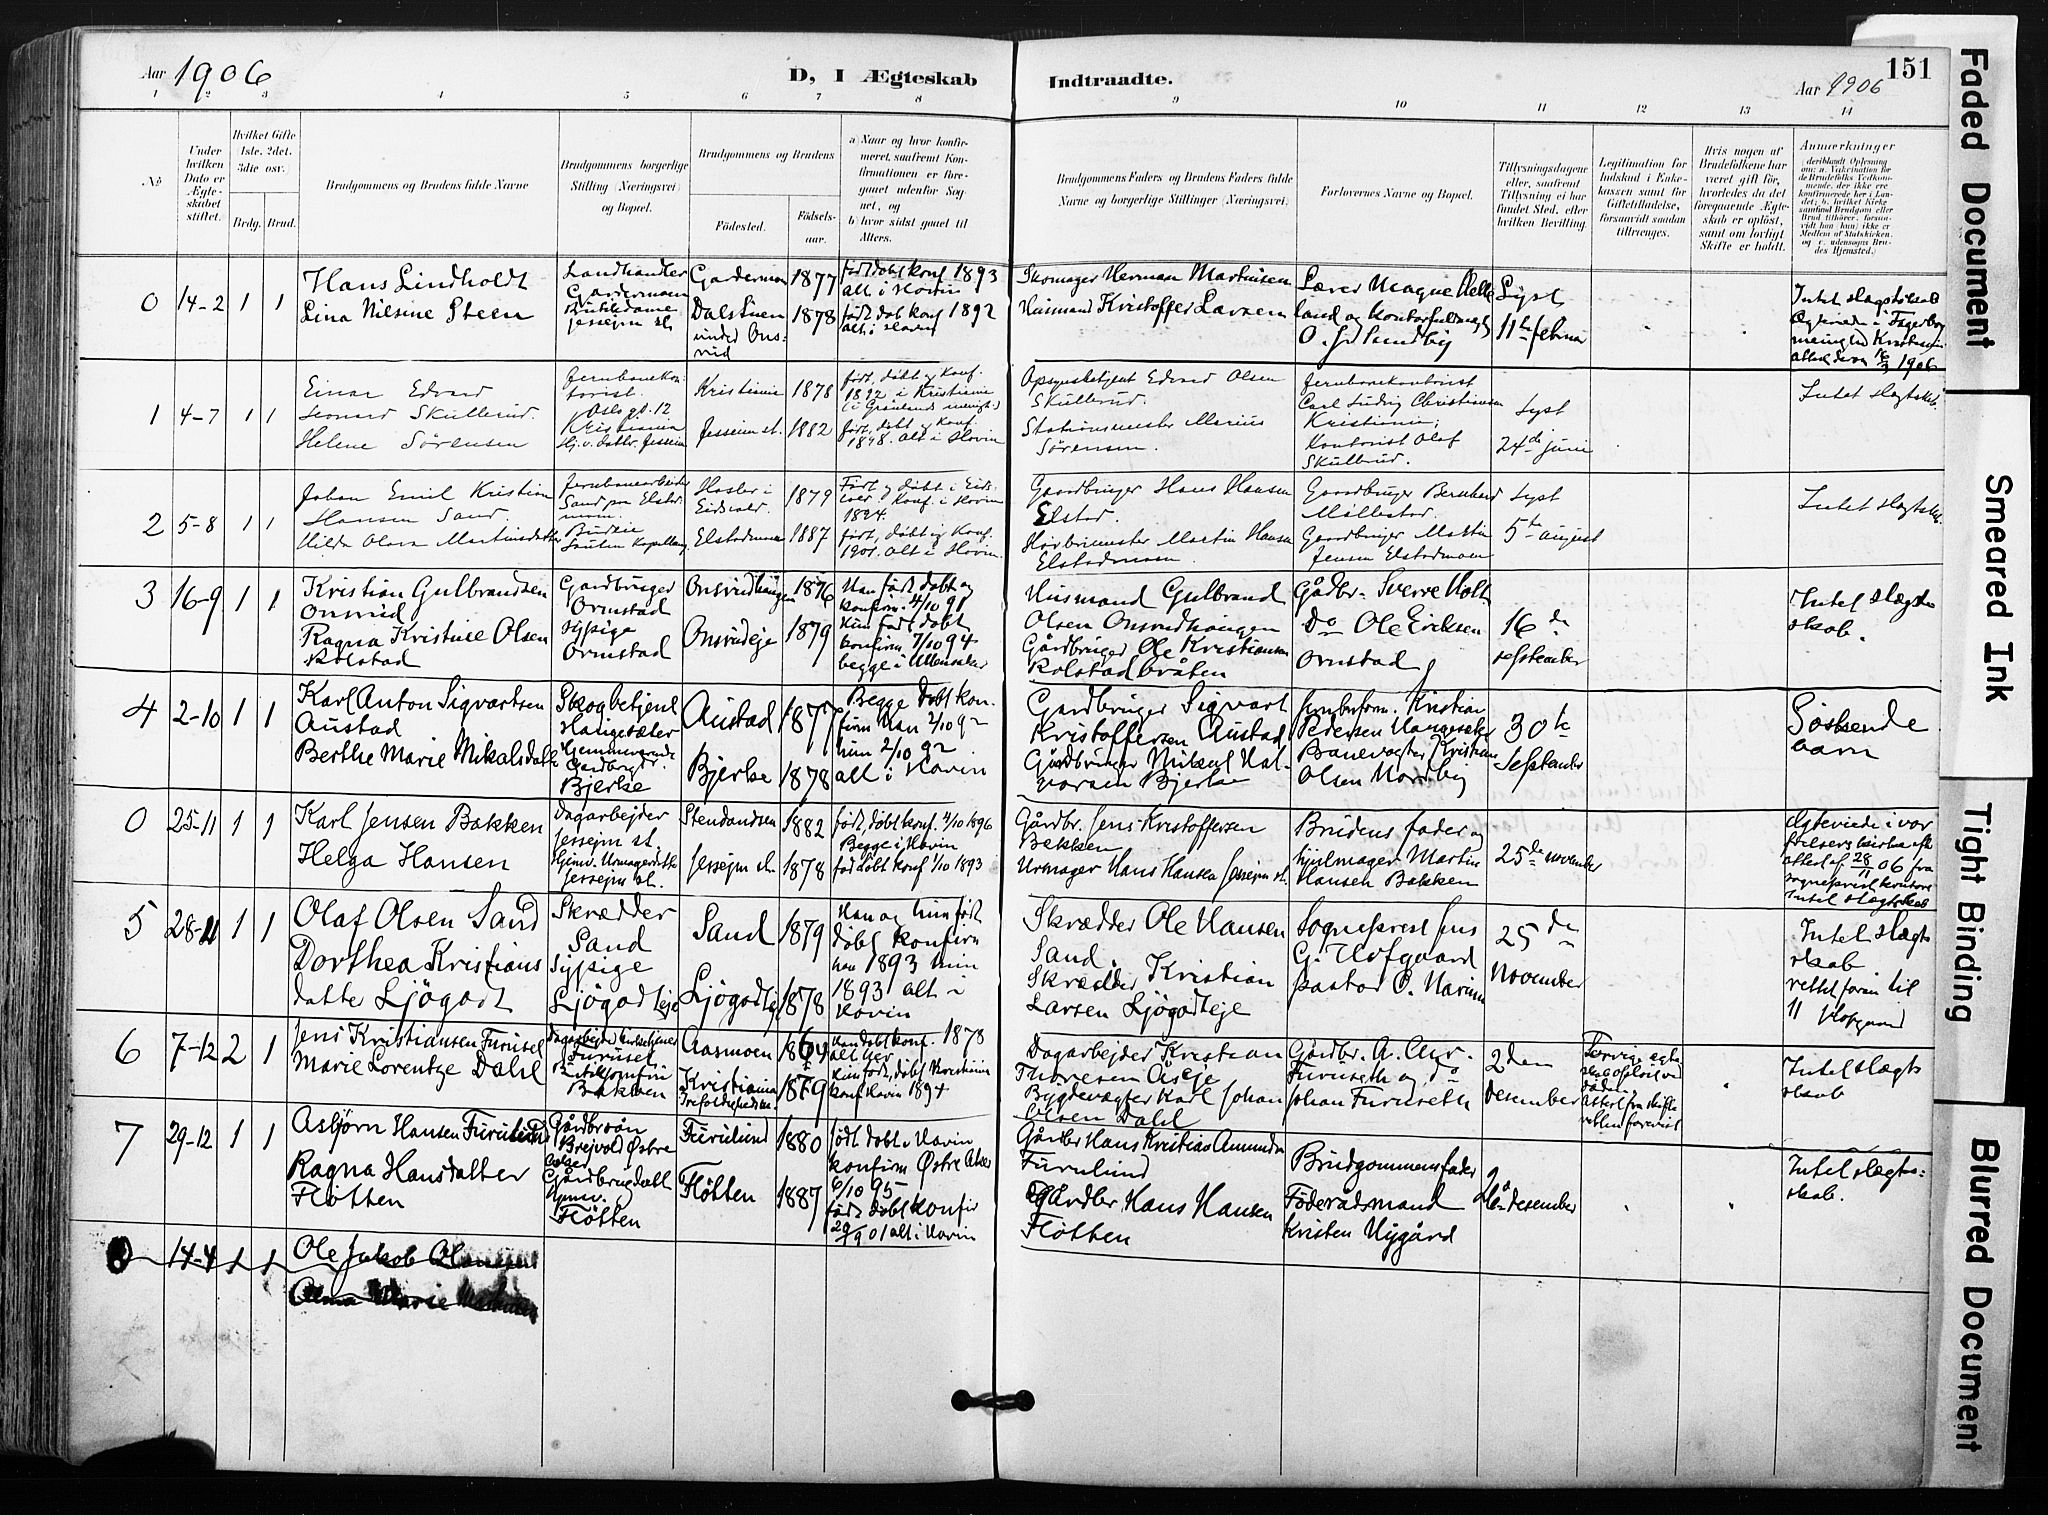 Aar 1906
D, I Ægteskab
Indtraadte.
Aar 1906
151
1 2 3 4 5 6 7 8
9 10 11 12 13 14
No
Under hvilken Dato er Ægteskabet stiftet.
Hvilket Gifte 1ste. 2det. 3die osv.
Brdg.
Brud.
Brudgommens og Brudens fulde Navne
Brudgommens borgerlige Stilling (Næringsvei) og Bopæl.
Brudgommens og Brudens
Fødested.
Fødselsaar.
a) Naar og hvor konfirmeret, saafremt Konfirmationen er foregaaet udenfor Sognet, og
b) hvor sidst gaaet til Alters.
Brudgommens Faders og Brudens Faders fulde Navne og borgerlige Stillinger (Næringsvei)
Forlovernes Navne og Bopæl.
Tillysningsdagene eller, saafremt Tillysning ei har fundet Sted, efter hvilken Bevilling.
Legitimation for Indskud i Enkekassen samt for Giftetilladelse, forsaavidt saadan tiltrænges.
Hvis nogen af Brudefolkene har været gift før, hvorledes da det foregaaende Ægteskab er opløst, samt om lovligt Skifte er holdt.
Anmærkninger
0 14-2 1 1
Hans Lindholdt
Lina Nilsine Steen
Landhandler
Gardermoen
Butikdame
Jessejm st.
Gardermoen 1877
Dalstuen under Onsrud 1878
født døbt konf 1893
alt i Hovin
født døb konf 1892
alt i Hovin
Skomager Herman Martinisen
Husmand Kristoffer Larsen
Lærer Magne Helleland og kontorfuldmægt
Lyst
11te februar
Intet slægtskab
1 4-7 1 1
Einar Edvard
Leonard Skullerud.
Helene Sörensen
Jernbanekontorist.
Oslo gt. 12
Kristiania
Hj.v. datter. Jessejm
Kristiania 1878
Jesseim st. 1882
født, døbt og konf.
1892 i Kristiania
(i Grønlands menigh.)
født, døbt og konf.
1898. alt i Hovin
Opsynsbetjent Edvard Olsen
Skullerud.
Stationsmester Marius
Sörensen.
Jernbanekontorist
Carl Ludvig Christiansen
Kristiania;
Kontorist Olaf
Skullerud.
Lyst
24de juni
Intet slægtskab.
2 5-8 1 1
Johan Emil Kristian
Hansen Sand.
Hilda Olava Martinsdatter
Jernbanearbeider
Sand paa Elstadmoen.
Budeie
Hasler i
Eidsvold. 1879
Elstadmoen 1887
Født og døbt i Eidsvold. Konf. i Hovin
1894.
født, døbt og konf.
1901. alt i Hovin.
Gaardbruger Hans Hansen
Elstad.
Martin Hansen
Elstadmoen
Gaardbruger Bernhard
Møllestad.
Gaardbruger Martin
Jensen Elstadmoen
Lyst
5te august
Intet slægtskab.
3 16-9 1 1
Kristian Gulbrandsen
Onsrud
Ragna Kristine Olsen
Rolstad
Gardbruger
Ormstad
Sypige
Ormstad
Onsrudhaugen 1876
Onsrudeje 1879
Han født døbt og
konfirm. 4/10 91
hun født døbt
konfirm. 7/10 94
begge i Ullensaker
Husmand Gulbrand
Olsen Onsrudhaugen
Gårdbruger Ole Kristiansen
Rolstadbråten
Gådbr. Sverre Holt
Do Ole Eriksen
Ormstad
16de
september
Intet slægtskab.
4 2-10 1 1
Karl Anton Sigvartsen
Austad
Berthe Marie Mikalsdatter
Skogbetjent
Haugesæter
Hjemmeværende
Gardbrgdr.
Bjerke
Austad 1877
Bjerke 1878
Begge døbt konfirm han 2/10 92
hun 2/10 92
alt i Hovin
Gardbruger Sigvart
Kristoffersen Austad
Gårdbruger Mikal Halvorsen Bjerke
Kristian
Pedersen Haugesæter
Banevogter Kristian
Olsen Nordby
30te
September
Søskendebarn
0 25-11 1 1
Karl Jensen Bakken
Helga Hansen
Dagarbejder
Jessejm st.
Hjemv. Urmagerdatter
Jessejm st.
Stendandsen 1882
Jessejm st. 1878
født, døbt konf. 4/10 1896
Begge i Hovin
fød døbt konf 1/10 1893
Gårdbr. Jens Kristoffersen
Bekken
Urmager Hans Hansen Jessejm st.
Brudens fader og
hjulmager Martin
Hansen Bakken
25de november
Ægteviede i vor
frelsers kirke eft
attest af 28/11 06 fra
sogneprestkontoret
Intet slægtskab
5 28-11 1 1
Olaf Olsen Sand
Dorthea Kristiansdatte Ljögodt
Skrædder
Sand
Sypige
Ljögodteje
Sand 1879
Ljögodteje 1878
Han og hun født
døbt konfirm
han 1893 hun
1893 alt i
Hovin
Skrædder Ole Hansen
Sand.
Skrædder Kristian
Larsen Ljögodteje
Sogneprest Jens
G. Hofgaard
pastor C. Harim
25de
november
Intet slægtskab
rettet foran til
11 Hofgaard
6 7-12 2 1
Jens Kristiansen Furuset
Marie Lorentze Dahl
Dagarbejder
Furuset
Butikjomfru
Bakken
Aasmoen
Kristiania 1879
han døbt konf. 1878
alt her
hun født, døbt Kristiania
konf Hovin 1894
Dagarbejder Kristian
Thoresen Åseje
Bygdevægter Karl Johan
Olsen Dahl
Gårdbr. A. Chr.
Furuseth og do
Johan Furuseth
2den
desember
Forrige ægteskab opløst ved
døden
attest fra skifteretten forevist
Intet slægtskab
7 29-12 1 1
Asbjørn Hansen Furulund
Ragna Hansdatter
Fløtten
Gårdbrsön
Brejvold Østre
Aker
Gårdbrugdatt
hjmv.
Fløtten
Furulund 1880
Fløtten 1887
født døbt Hovin
konfirm Østre Aker
6/10 95
født døbt konfir
29/9 01 alt i Hovin
Gårdbr Hans Kristian Amundsen
Furulund
Gårdbr. Hans Hansen
Fløtten
Brudgommens fader
Føderådsmand
Kristen Nygård
2den desember
Intet slægtsskab.
0 14-4 1 1
Ole Jakob
Alma Marie
Faded Document
Smeared Ink
Tight Binding
Blurred Document